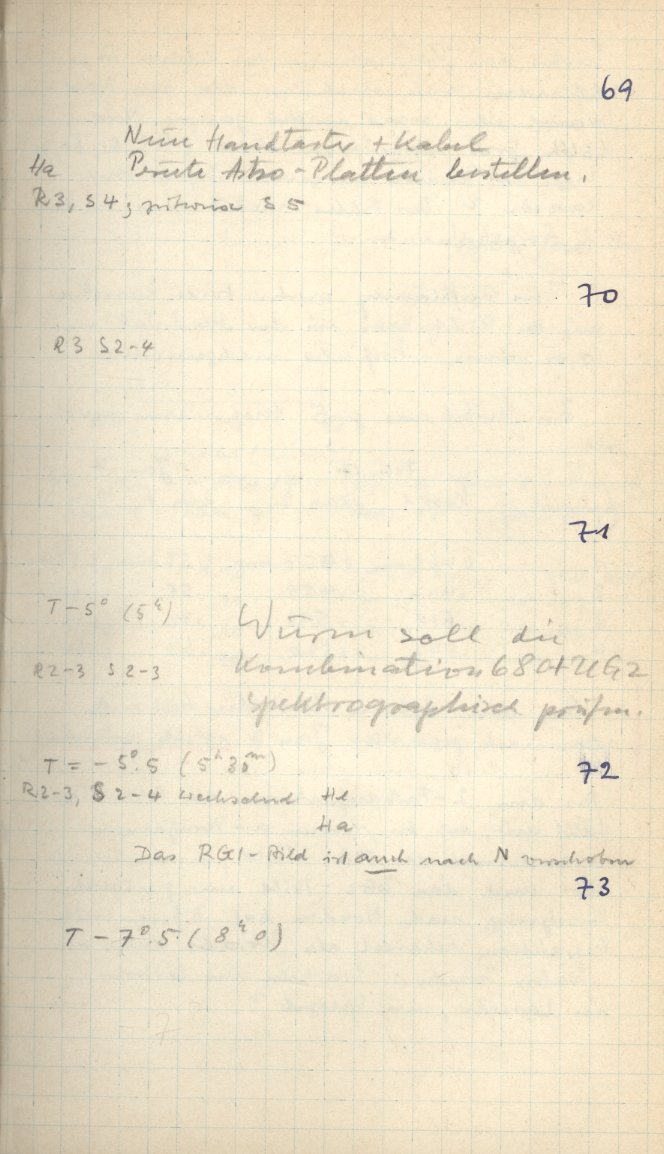 69
Neue Handtaster + Kabel
Ha Perutz Astro-Platten bestellen.
R3, S4, zeitweise S5
70
R3 S2-4
71
T-5° (5ʰ) Wurm soll die
R2-3 S2-3 Kombination 680+UG2
spektrographisch prüfen.
T = -5°.5 (5ʰ30ᵐ) 72
R2-3, S2-4 wechselnd He
Ha
Das RG1-Bild ist auch nach N verschoben
73
T - 7°.5 (8ʰ0)